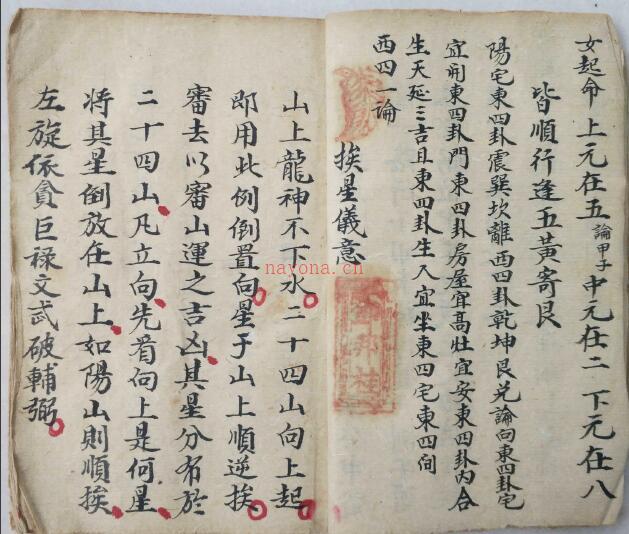 女起命上元在五論甲子中元在二下元在八
皆順行逢五黄寄艮
陽宅東四卦震巽坎離西四卦乾坤艮兑論向東四卦宅
宜開東四卦門東四卦房屋宜高灶宜安東四卦内合
生天延三吉且東四卦生人宜坐東四宅東四间
西四一論
挨星儀意
山上龍神不下水二十四山向上起
即用此例倒置向星于山上順逆挨
審去以審山運之吉凶其星分布於
二十四山凡立向先看向上是何星
將其星倒放在山上如陽山則順挨
左旋依貪巨祿文武破輔弼
nayona.cn